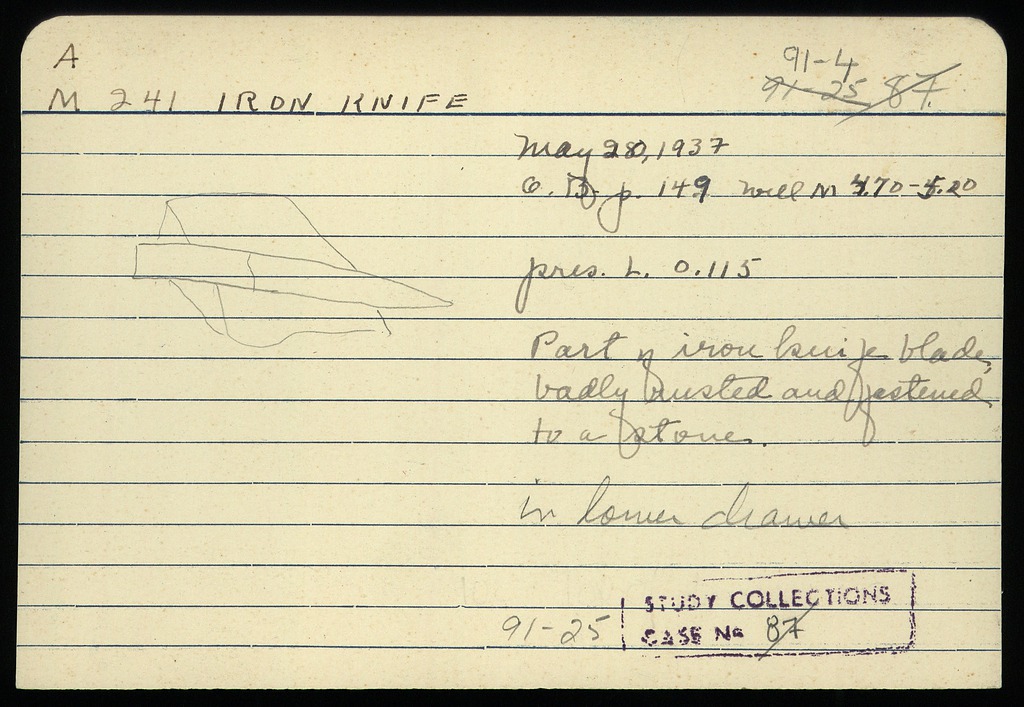 A
91-4
M 241 IRON KNIFE
91-25 87.
May 28, 1937
O.B. p. 149 Well M 4.70-5.20
pres. L. 0.115
Part of iron knife blade,
badly rusted and fastened
to a stone.
in lower drawer
STUDY COLLECTIONS
91-25
CASE No 87